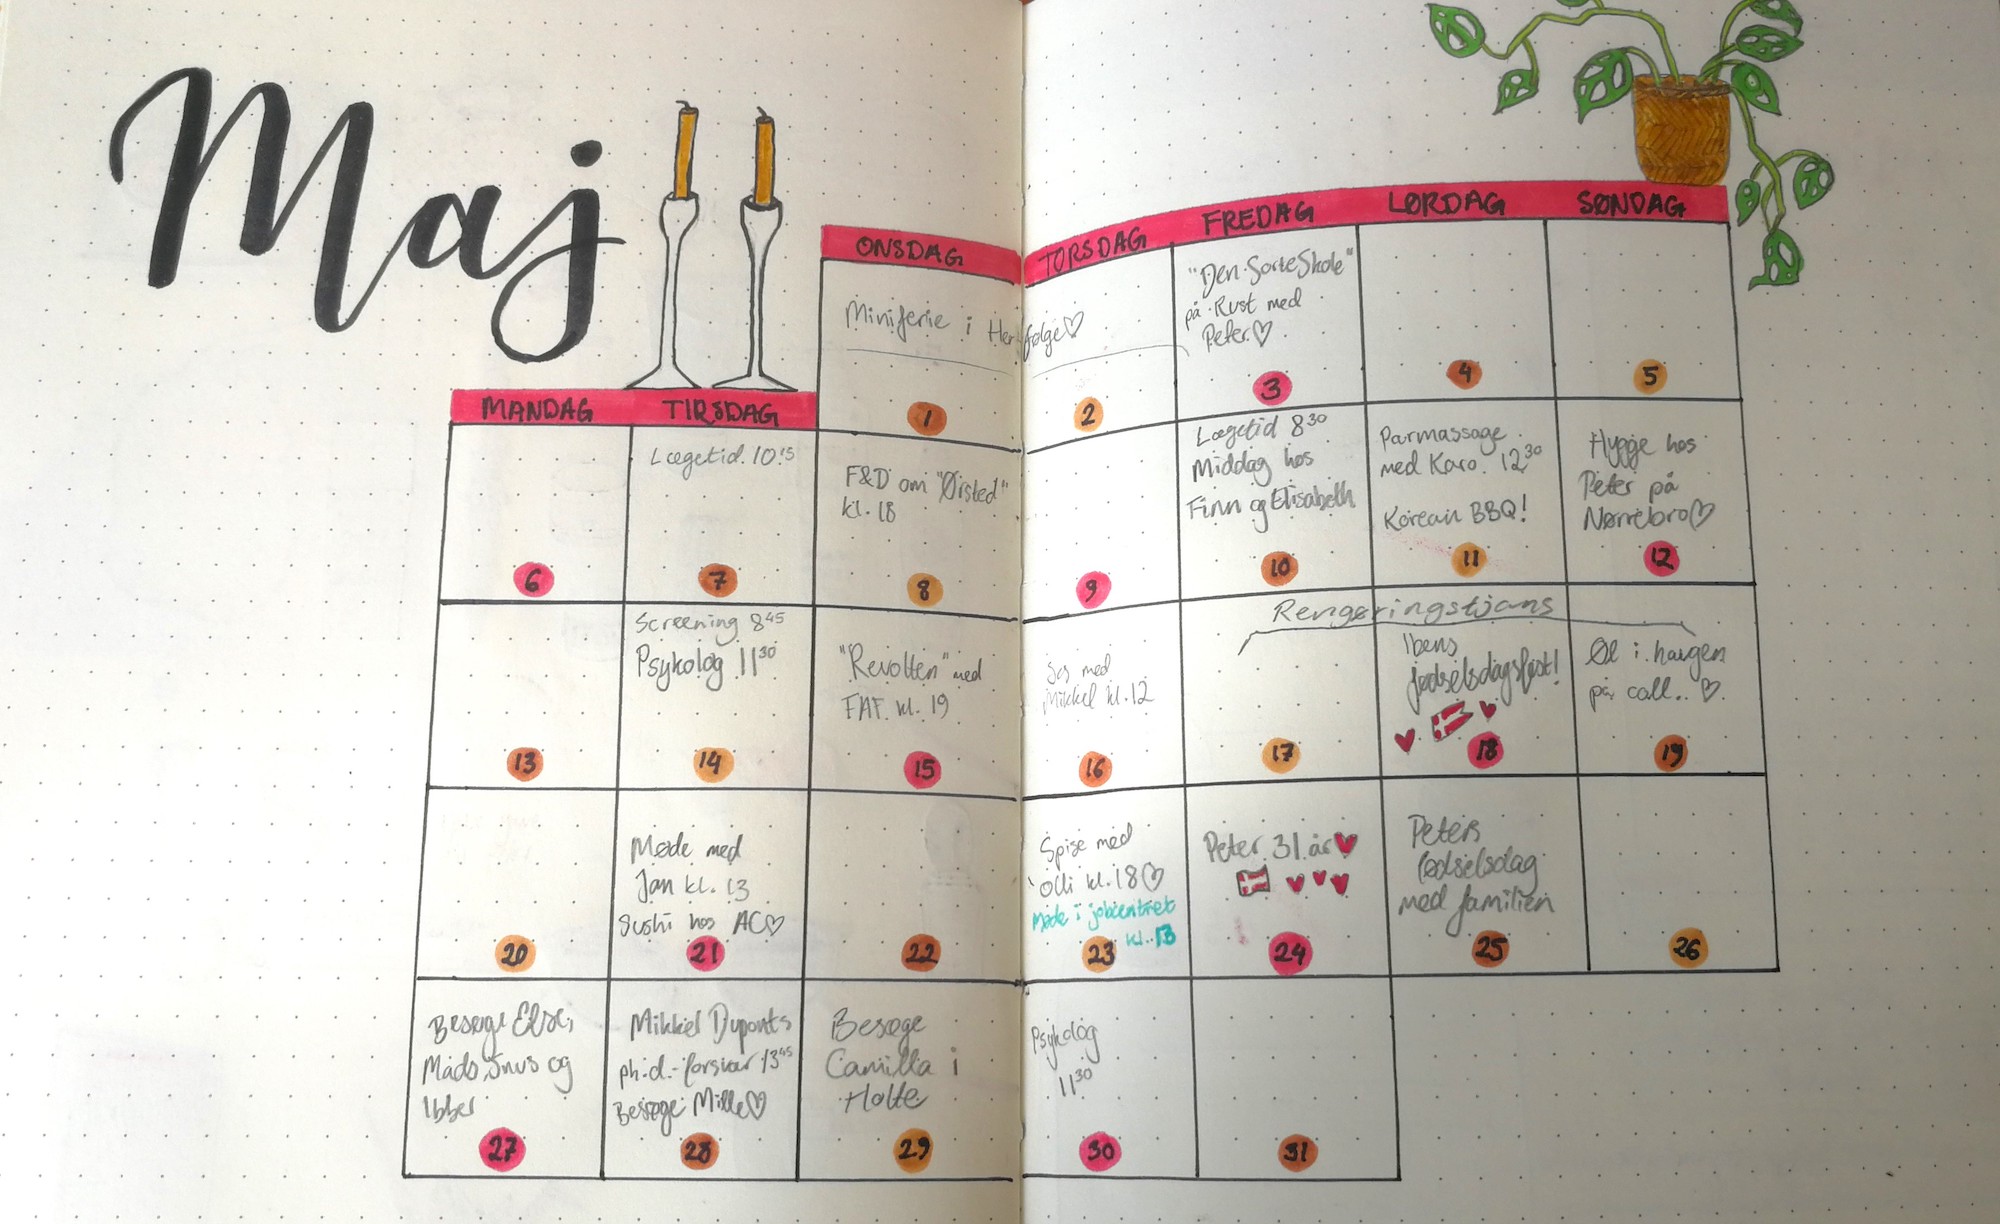 Maj
MANDAG TIRSDAG ONSDAG TORSDAG FREDAG LØRDAG SØNDAG
Miniferie i Herfølge♡
1
2
"Den Sorte Skole"
på Rust med
Peter♡
3
4
5
6
Lægetid 10¹⁵
7
F&D om "Ørsted"
kl. 18
8
9
Lægetid 8³⁰
Middag hos
Finn og Elisabeth
10
Parmassage
med Karo. 12³⁰
Korean BBQ!
11
Hygge hos
Peter på
Nørrebro♡
12
13
Screening 8⁴⁵
Psykolog 11³⁰
14
"Revolten" med
FAF kl. 19
15
med
Mikkel kl. 12
16
Rengøringstjans
17
Ibens
fødselsdagsfest!
18
Øl i haven
på call.. ♡
19
20
Møde med
Jan kl. 13
Sushi hos AC♡
21
22
Spise med
Olli kl. 18♡
Møde i jobcentret
kl. 13
23
Peter 31 år♥
24
Peters
fødselsdag
med familien
25
26
Besøge Else,
Mads, Snus og
Ibber
27
Mikkel Duponts
ph.d.-forsvar 13⁴⁵
Besøge Mille♡
28
Besøge
Camilla i
Holte
29
Psykolog
11³⁰
30
31